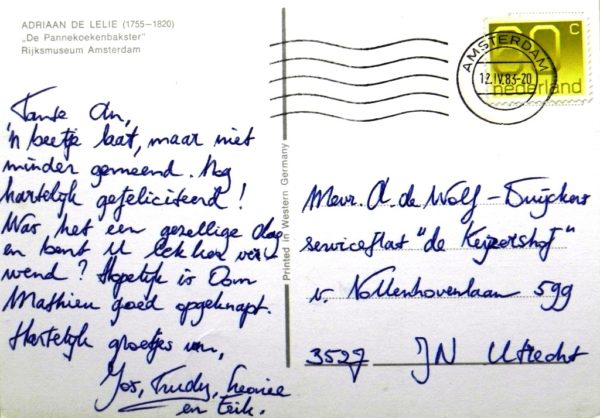 ADRIAAN DE LELIE (1755–1820)
„De Pannekoekenbakster"
Rijksmuseum Amsterdam
Tante An,
'n beetje laat, maar niet
minder gemeend. Nog
hartelijk gefeliciteerd!
Was het een gezellige dag
en bent U lekker ver-
wend? Hopelijk is Oom
Mathieu goed opgeknapt.
Hartelijk groetjes van,
Jos, Trudy, Leonie
en Erik.
Printed in Western Germany
AMSTERDAM
12.IV.83-20
60 c
nederland
Mevr. A. de Wolf-Duijckers
serviceflat "de Keyzershof"
v. Vollenhovenlaan 599
3527 JN Utrecht